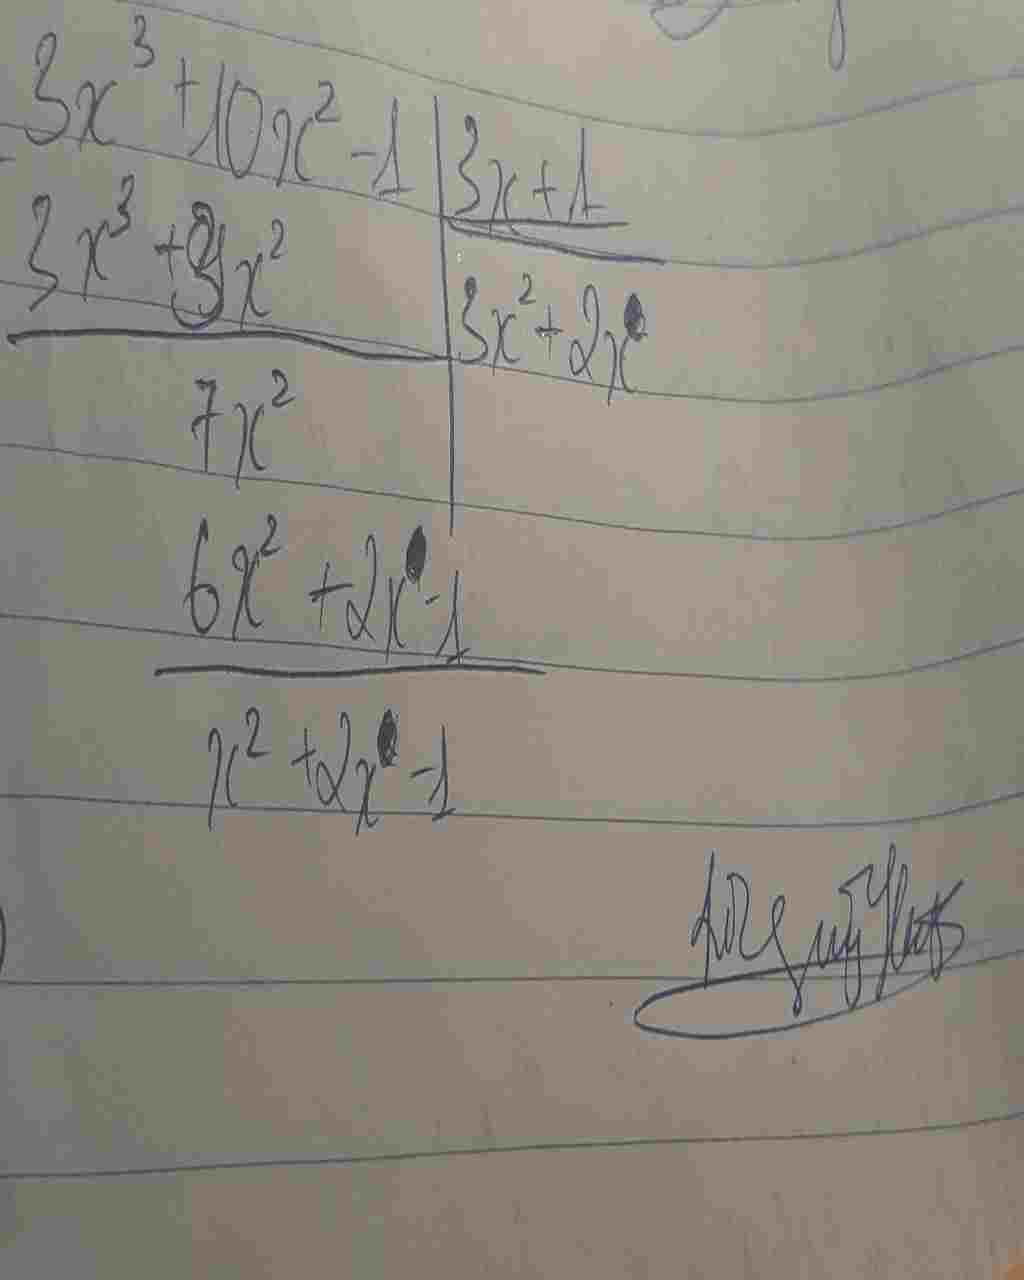 3x³ + 10x² - 1 | 3x + 1
3x³ + 3x² | 3x² + 2x
7x²
6x² + 2x - 1
x² + 2x - 1